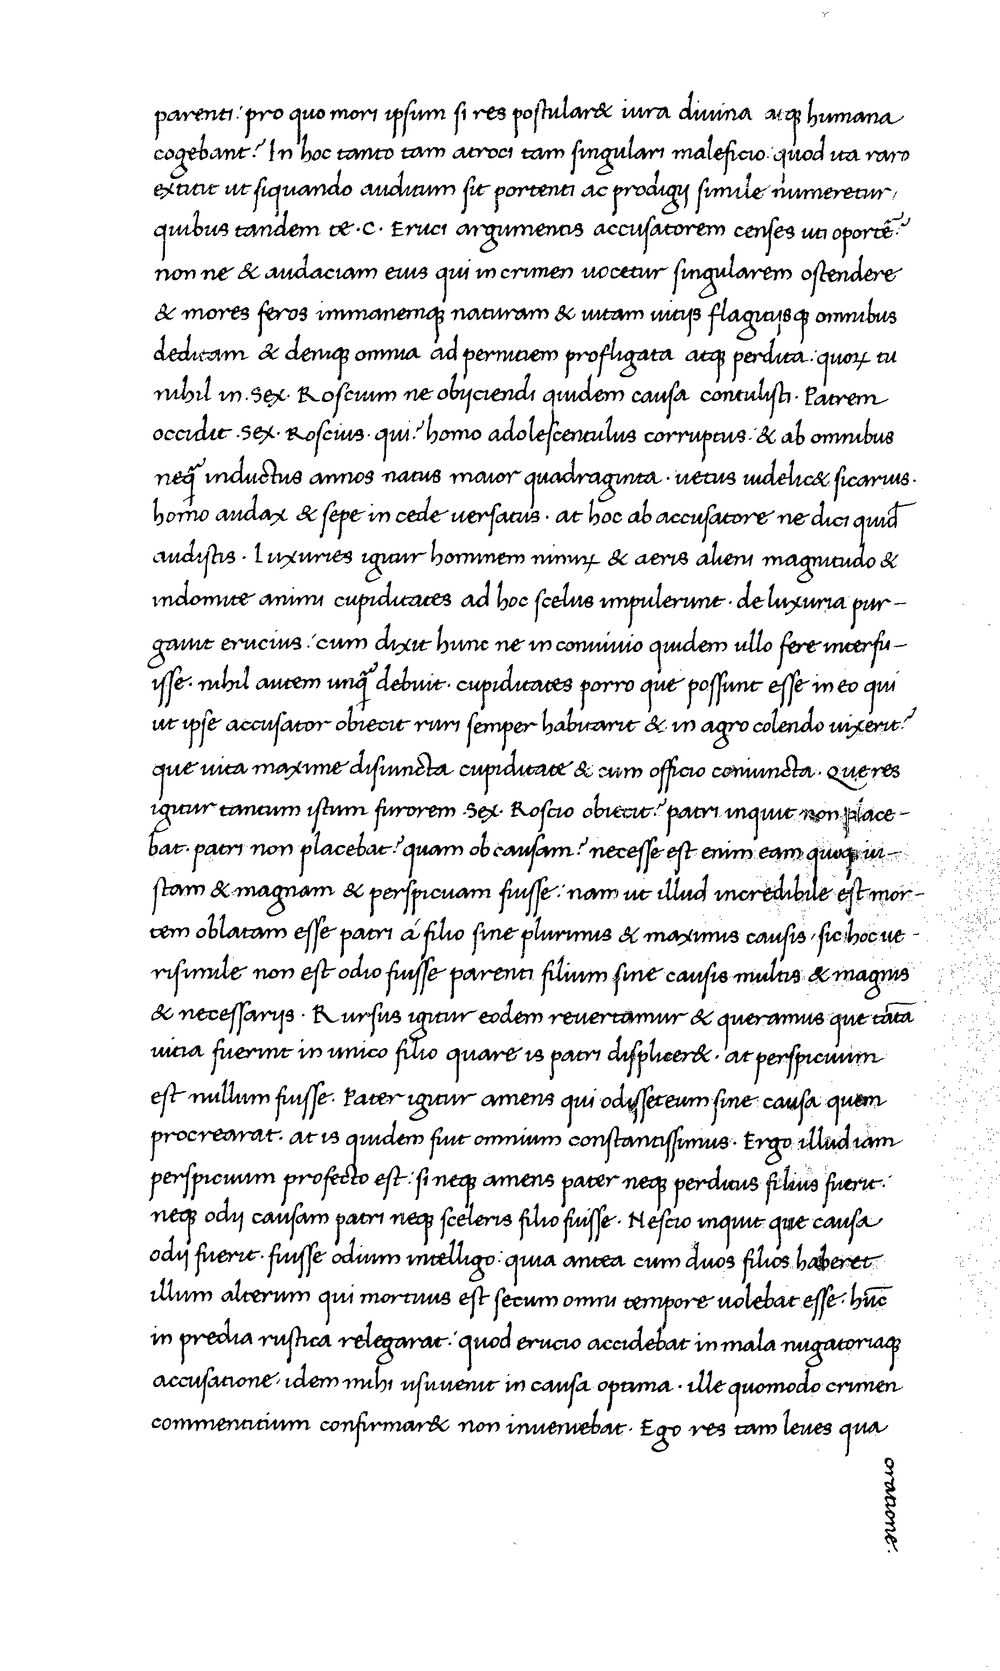 parenti: pro quo mori ipsum si res postular& iura diuina atq; humana
cogebant? In hoc tanto tam atroci tam singulari maleficio: quod ita raro
extitit ut siquando auditum sit portenti ac prodigij simile numeretur,
quibus tandem te ·C· Eruci argumentis accusatorem censes uti oportē?
non ne & audaciam eius qui in crimen uocetur singularem ostendere
& mores feros immanemq; naturam & uitam uitijs flagitijsq; omnibus
deditam & deniq; omnia ad pernitiem profligata atq; perdita: quoꝝ tu
nihil in ·Sex· Roscium ne obijciendi quidem causa contulisti· Patrem
occidit ·Sex· Roscius· qui? homo adolescentulus corruptus: & ab omnibus
neq̃ inductus annos natus maior quadraginta · uetus uidelic& sicarius·
homo audax & sepe in cede uersatus· at hoc ab accusatore ne dici quid̄
audistis · Luxuries igitur hominem nimiꝝ & aeris alieni magnitudo &
indomite animi cupiditates ad hoc scelus impulerunt· de luxuria pur-
gauit erucius: cum dixit hunc ne in conuiuio quidem ullo fere interfu-
isse· nihil autem unq̃ debuit· cupiditates porro que possunt esse in eo qui
ut ipse accusator obiecit ruri semper habitarit & in agro colendo uixerit?
que uita maxime disiuncta cupiditate & cum officio coniuncta· Que res
igitur tantum istum furorem ·Sex· Roscio obiecit? patri inquit non place-
bat· patri non placebat? quam ob causam? necesse est enim eam quoq; iu-
stam & magnam & perspicuam fuisse: nam ut illud incredibile est mor-
tem oblatam esse patri á filio sine plurimis & maximis causis, sic hoc ue-
risimile non est odio fuisse parenti filium sine causis multis & magnis
& necessarijs· Rursus igitur eodem reuertamur & queramus que tāta
uitia fuerint in unico filio quare is patri displicer&· at perspicuum
est nullum fuisse· Pater igitur amens qui odisset eum sine causa quem
procrearat· at is quidem fuit omnium constantissimus· Ergo illud iam
perspicuum profecto est: si neq; amens pater neq; perditus filius fuerit:
neq; odij causam patri neq; sceleris filio fuisse· Nescio inquit que causa
odij fuerit· fuisse odium intelligo: quia antea cum duos filios haberet
illum alterum qui mortuus est secum omni tempore uolebat esse· hūc
in predia rustica relegarat: quod erucio accidebat in mala nugatoriaq;
accusatione, idem mihi usuuenit in causa optima· ille quomodo crimen
commentitium confirmar& non inueniebat· Ego res tam leues qua
oratione·